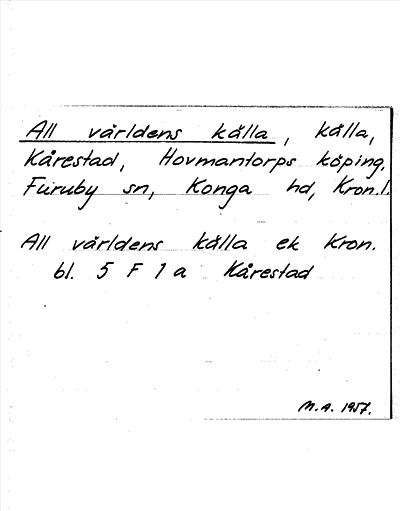 All världens källa, källa,
Kårestad, Hovmantorps köping,
Furuby sn, Konga hd, Kron.l.
All världens källa ek Kron.
bl. 5 F 1 a Kårestad
M.A. 1957.